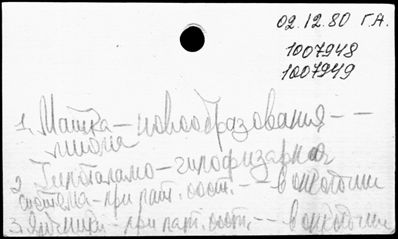 02.12.80 Г.А.
1007948
1007949
1. Матка – новообразования – –
миома
2. Гипоталамо – гипофизарная
система – при пат. сост. – – в онтогении
3. Яичники – при пат. сост. – – в онтогении